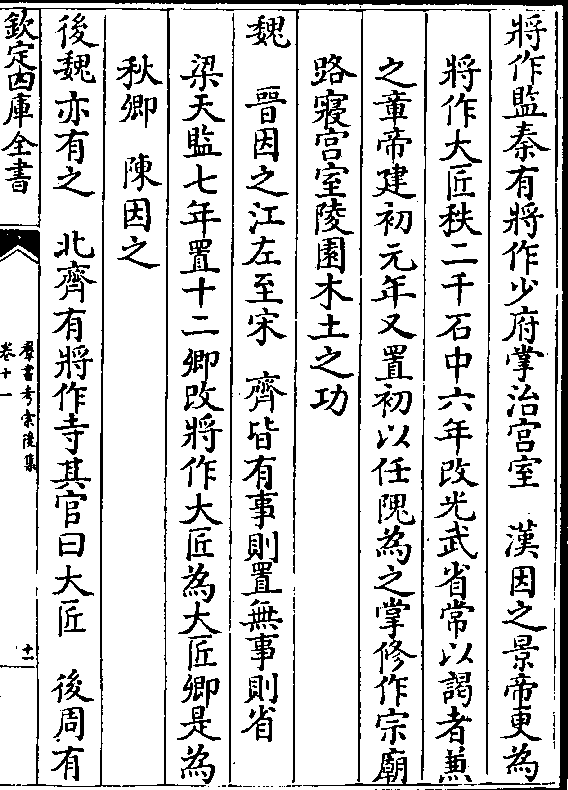 將作監秦有將作少府掌治宫室　漢因之景帝更為
將作大匠秩二千石中六年改光武省常以謁者兼
之章帝建初元年又置初以任隗為之掌修作宗廟
路寢宫室陵園木土之功
魏　晉因之江左至宋　齊皆有事則置無事則省
梁天監七年置十二卿改將作大匠為大匠卿是為
秋卿　陳因之
後魏亦有之　北齊有將作寺其官曰大匠　後周有
欽定四庫全書
羣書考索後集
卷十一
十一